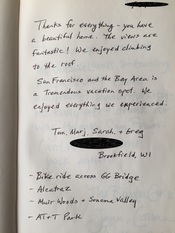 Thanks for everything - you have
a beautiful home. The views are
fantastic! We enjoyed climbing
to the roof.
San Francisco and the Bay Area is
a Tremendous vacation spot. We
enjoyed everything we experienced.
Tom, Marj, Sarah, + Greg
Brookfield, WI
- Bike ride across GG Bridge
- Alcatraz
- Muir Woods + Sonoma Valley
- AT+T Park